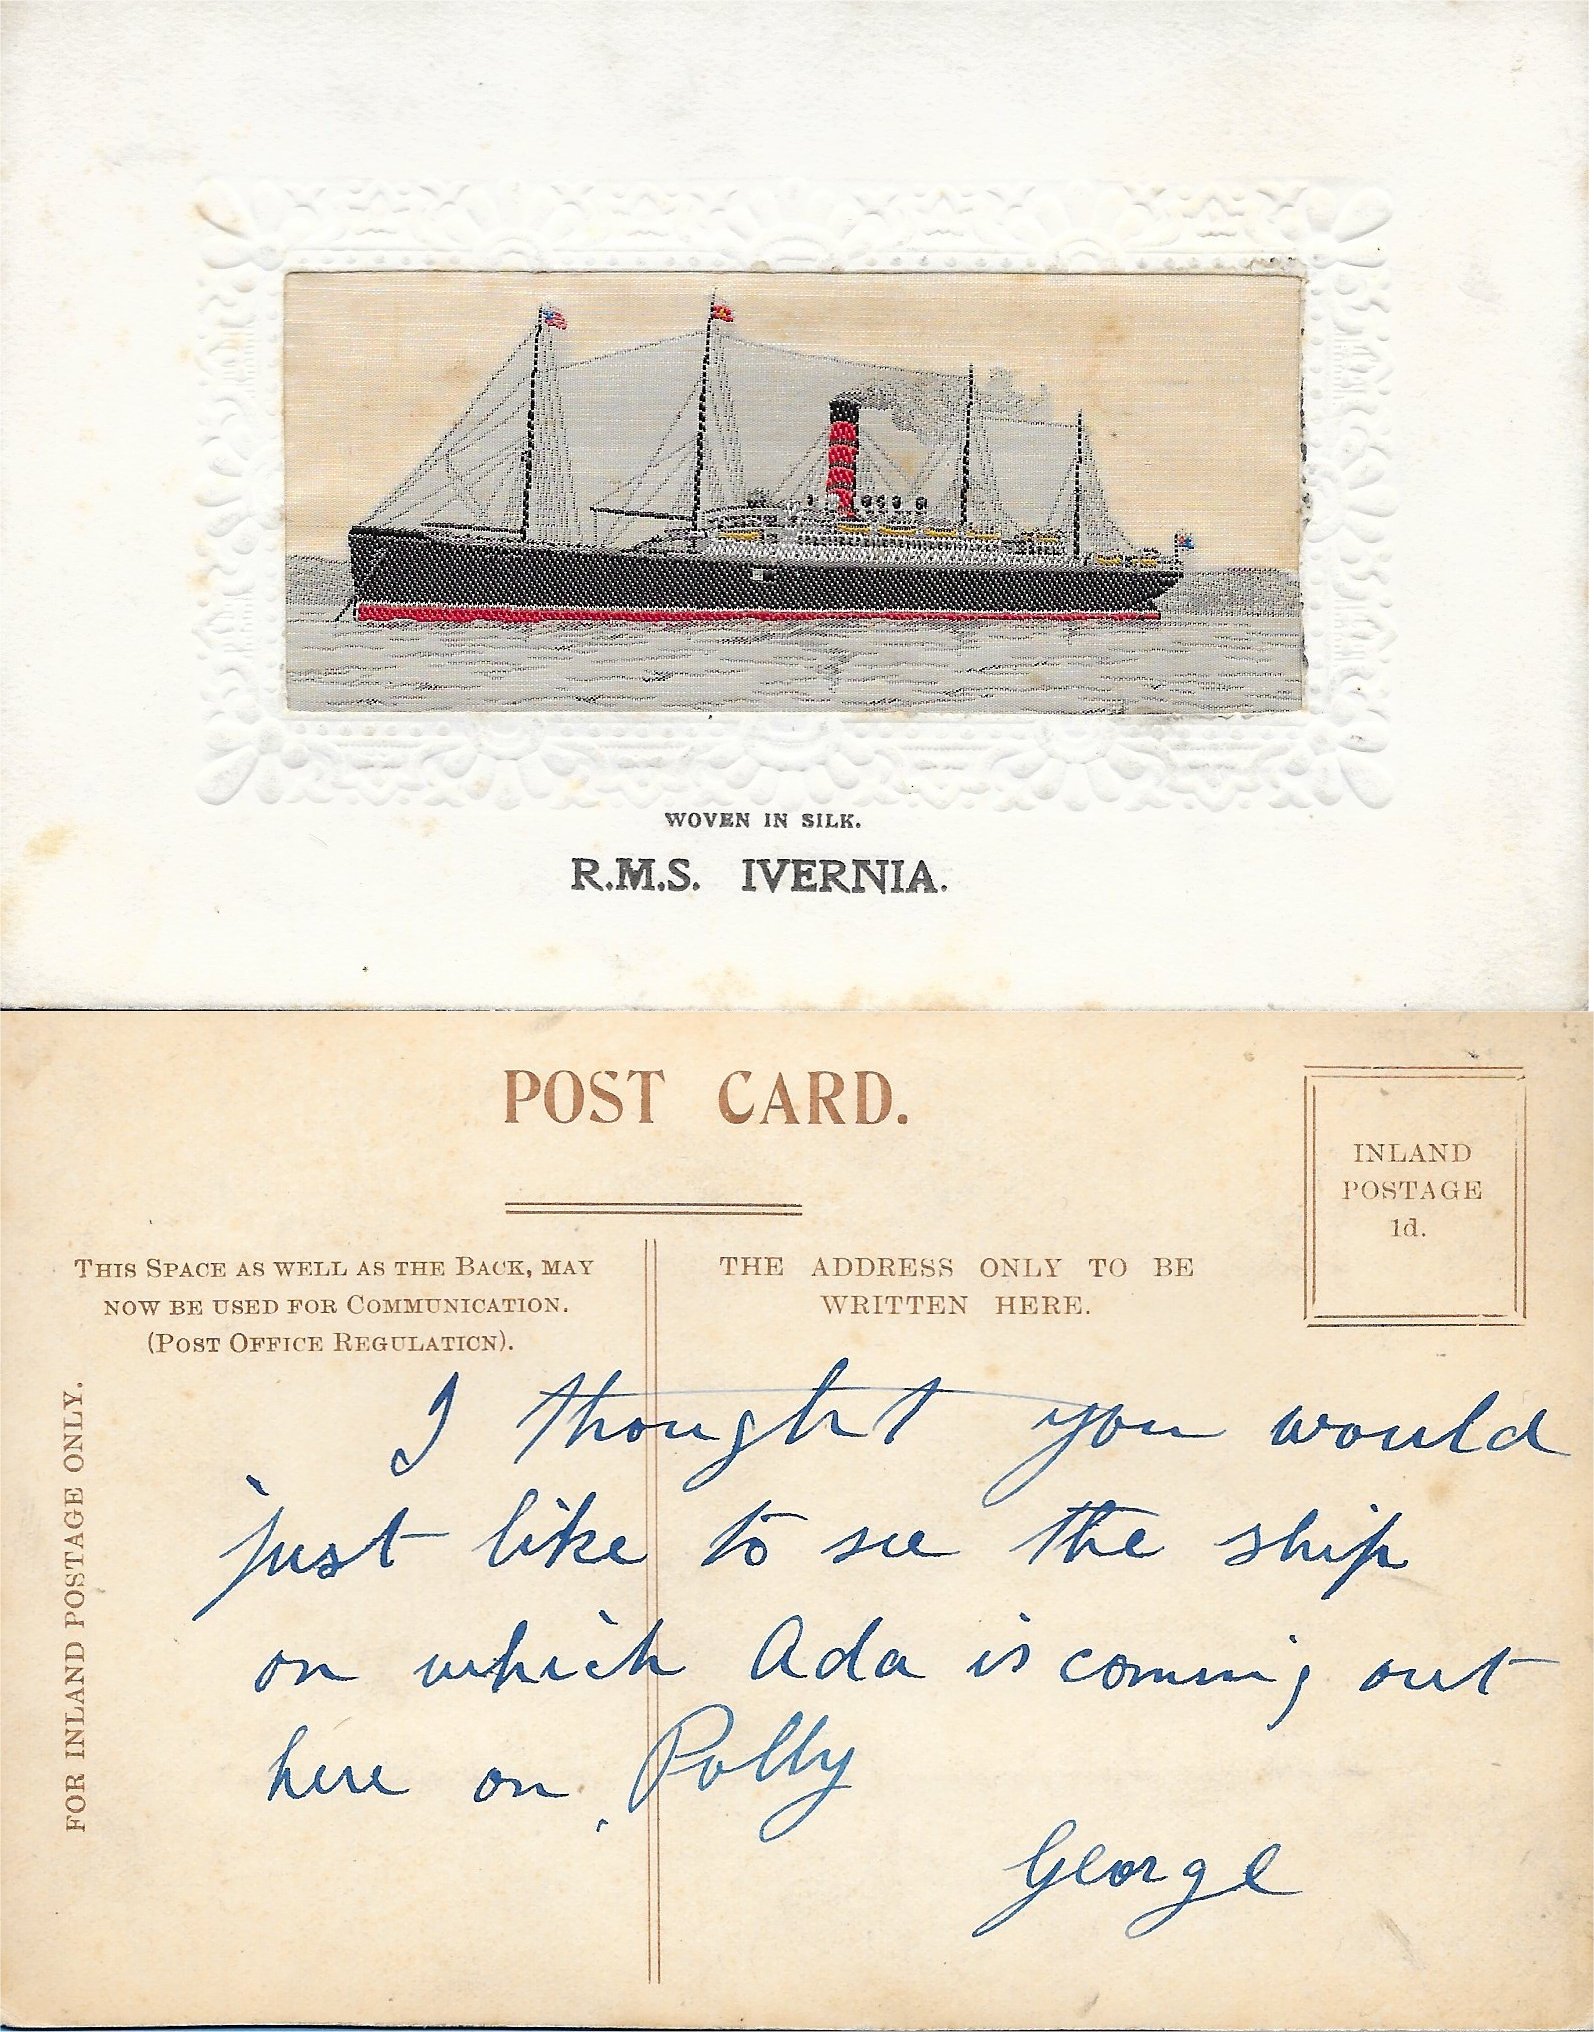 WOVEN IN SILK.
R.M.S. IVERNIA.
POST CARD.
INLAND
POSTAGE
1d.
THIS SPACE AS WELL AS THE BACK, MAY
NOW BE USED FOR COMMUNICATION.
(POST OFFICE REGULATION).
THE ADDRESS ONLY TO BE
WRITTEN HERE.
FOR INLAND POSTAGE ONLY.
I thought you would
just like to see the ship
on which Ada is coming out
here on, Polly
George